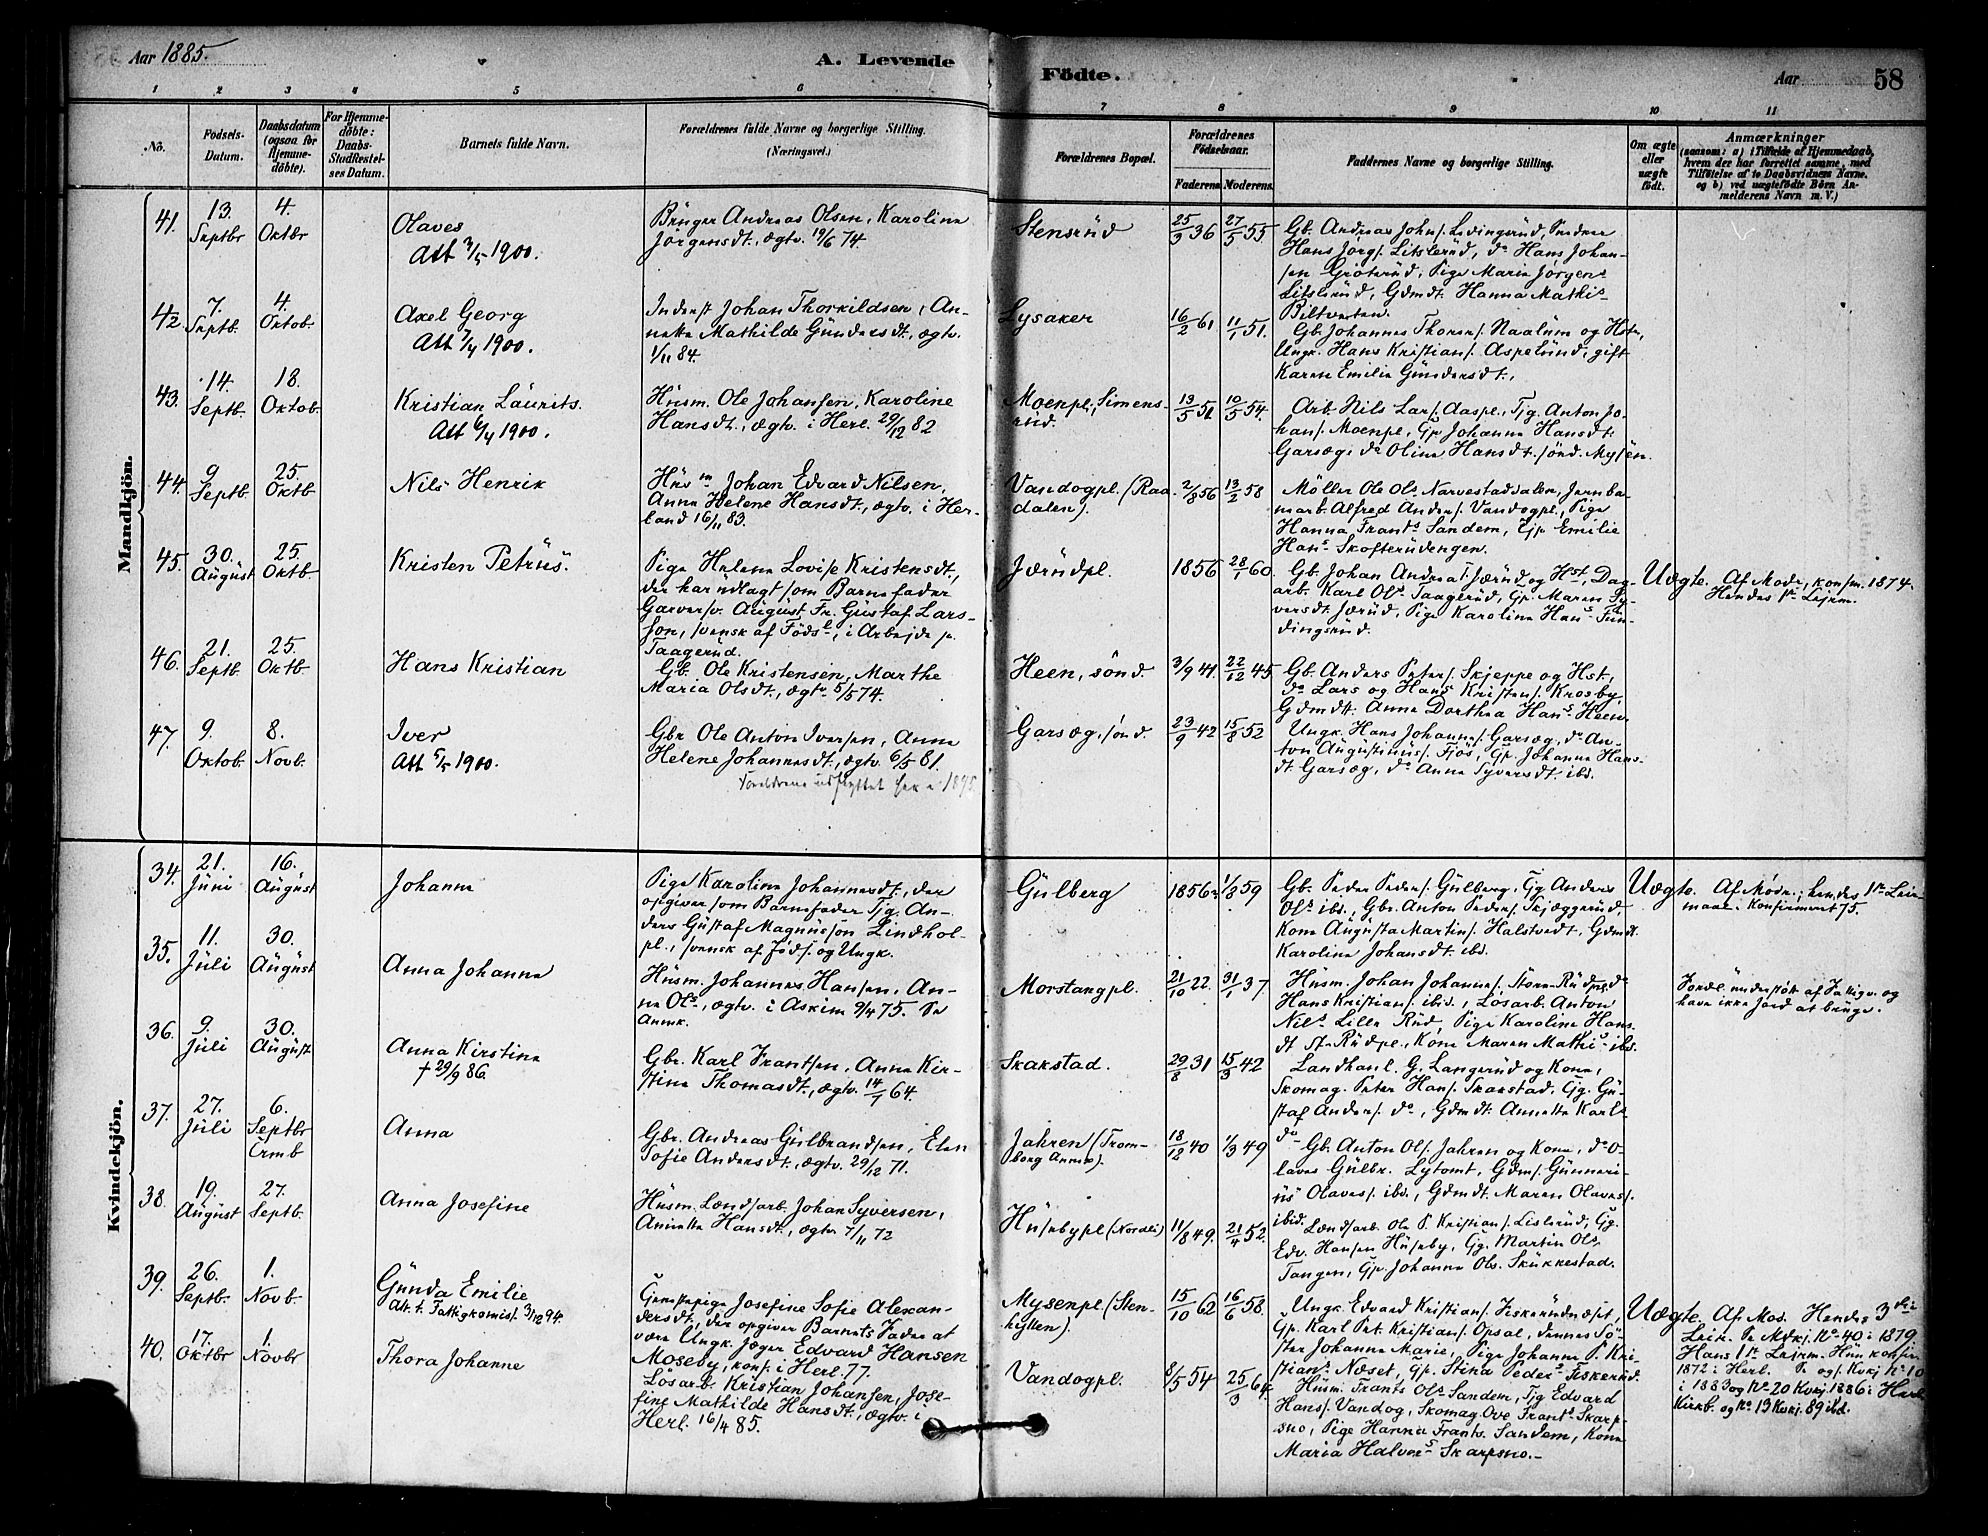 Aar 1885.
A. Levende
Födte.
Aar
58
1 2 3 4 5 6 7 8 9 10 11
No.
Fodsels-
Datum.
Daabsdatum
(ogsaa for
Hjemme-
döbte).
For Hjemme-
döbte:
Daabs-
Stadfæstel-
ses Datum.
Barnets fulde Navn.
Forældrenes fulde Navne og borgerlige Stilling.
(Næringsvei.)
Forældrenes Bopæl.
Forældrenes
Födselsaar.
Faderens. Moderens.
Faddernes Navne og borgerlige Stilling.
Om ægte
eller
uægte
födt.
Anmærkninger
(saasom: a) i Tilfælde af Hjemmedaab,
hvem der har forrettet samme, med
Tilföielse af to Daabsvidners Navne.
og b) ved uægtefödte Börn An-
melderens Navn m. V.)
Mandkjön.
41. 13. Septbr 4. Oktbr
Olaves
Att 3/5 1900.
Brüger Andreas Olsen, Karoline
Jörgensdt., ægtv. 19/6 74.
Stensrüd 25/3 36 27/5 55
Gb. Andreas Johs. Lövingsrüd, Peder
Hans Jörgs. Litslerüd, do Hans Johan-
sen Grötsrüd, Pige Maria Jörgens
Litslerüd, Gdmdt. Hanna Mathis
42. 7. Septb. 4. Oktob.
Axel Georg
Att 7/4 1900.
Inderst Johan Thorkildsen, An-
nette Mathilde Gündersdt., ægtv.
1/11 84.
Lysaker 16/2 61 11/1 51.
Gb. Johannes Thores. Naalüm og Hstr,
Ungk. Hans Kristians. Aspelünd, gift
Karen Emilie Gündersdt.,
43. 14. Septb. 18. Oktob.
Kristian Laürits.
Att 6/4 1900.
Hüsm. Ole Johansen, Karoline
Hansdt., ægtv. i Herl. 29/12 82
Moenpl., Simens-
rüd. 13/5 51. 10/5 54.
Arb. Nils Lars. Aaspl., Tjg. Anton Jo-
hans. Moenpl., Gp Johanne Hansdt.
Garsæg, do Oline Hansdt. sönd. Mysen.
44. 9. Septb 25. Oktb
Nils Henrik
Hüsm Johan Edvard Nilsen,
Anne Helene Hansdt., ægtv. i Her-
land 16/11 83.
Vandogpl. (Raa-
dalen). 2/8 56 13/2 58
Möller Ole Ols Narvestaddalen, Jernba-
nearb. Alfred Anders. Vandogpl., Pige
Hanna Frants Sandem, Gp Emilie
Hans Skofterüdengen.
45. 30. Aügüst 25. Oktb.
Kristen Petrüs.
Pige Helene Lovise Kristensdt.,
der har üdlagt som Barnefader
Garversv. Aügüst Fr. Güstaf Lars-
son, svensk af Födsl., i Arbejde p.
Taagerüd.
Jærüdpl. 1856 28/1 60.
Gb. Johan Andreas. Jærüd og Hst., Dag-
arb. Karl Ols Taagerüd, Gp. Maren Sy-
versdt. Jærüd, Pige Karoline Hans Fün-
dingsrüd.
Uægte. Af Modr., konfm. 1874.
Hendes 1ste Lejrm.
46. 21. Septb. 25. Oktb.
Hans Kristian
Gb. Ole Kristensen, Marthe
Maria Olsdt., ægtv. 5/5 74.
Heen, sönd. 3/9 41. 22/12 45
Gb. Anders Peters. Skjeppe og Hst.,
do Lars og Hans Kristens. Krosby
Gdmdt. Anne Dorthea Hans Heen.
47. 9. Oktob. 8. Novb.
Iver
Att 5/5 1900.
Gbr Ole Anton Iversen, Anne
Helene Johannesdt., ægtv. 6/5 81.
Forældrene udflyttet
Garsæg, sönd. 23/9 42 15/8 52
Ungk. Hans Johannes. Garsæg, do An-
ton Aügüstinüs. Fjös, Gp. Johanne Hans-
dt. Garsæg, do Anna Syversdt. ibd.
Kvindekjön.
34. 21. Jüni 16. Aügüst
Johanne
Pige Karoline Johannesdt., der
opgiver som Barnefader Tjg. An-
ders Güstaf Magnüsson Lindhol-
pl., svensk af Föds. og Ungk.
Gülberg 1856. 1/8 59
Gb. Peder Peders. Gülberg, Tjg Anders
Ols ibd., Gbr. Anton Peders. Skjæggerüd,
Kone Aügüsta Martins. Halstvedt, Gdmdt.
Karoline Johansdt. ibd.
Uægte. Af Modr.; hendes 1ste Leir-
maal. Konfirmeret 75.
35. 11. Jüli 30. Aügüst
Anna Johanne
Hüsm. Johannes Hansen, An-
ne Ols, ægtv. i Askim 9/4 75. Se
Anmk.
Morstangpl. 21/10 22. 31/1 37.
Hüsm. Johan Johannes. Store-Rüdpl., do
Hans Kristians. ibid., Lösarb. Anton
Nils Lille Rüd, Pige Karoline Hans-
dt St. Rüdpl., Kone Maren Mathis ibd.
Foræl. ünderstöt af Fattigv. og
have ikke Jord at brüge.
36. 9. Jüli 30. Aügüst
Anna Kirstine
† 29/9 86.
Gbr. Karl Frantsen, Anne Kir-
stine Thomasdt., ægtv. 14/1 64.
Skakstad. 29/8 31 15/3 42
Landhanl. G. Langerüd og Kone,
Skomag. Peter Hans. Skakstad, Tjg. Gü-
staf Anders. do, Gdmdt. Annette Karls
do
37. 27. Jüli 6. Septbr
Anna
Gbr. Andreas Gülbrandsen, Elen
Sofie Andersdt., ægtv. 29/12 71.
Jahren (Trom-
borg Annex). 18/12 40 1/3 49
Gb. Anton Ols. Jahren og Kone, do O-
laves Gülbr. Lytomt, Gdms. Günneri-
üs Olaves. ibd., Gdmdt. Maren Olaves.
ibid.
38. 19. Aügüst 27. Septb.
Anna Josefine
Hüsm. Lændsarb. Johan Syversen,
Annette Hansdt., ægtv. 7/11 72
Hüsebypl (Nordli) 11/8 49. 21/4 52.
Lændsarb. Ole P. Kristians. Lislerüd, Tjg.
Edv. Hansen Hüseby, Tjg. Martin Ols
Tangen, Gp. Johanne Ols. Skükkestad.
39. 26. Septb. 1. Novb.
Günda Emilie
Att. t. Fattigkomis. 3/12 94.
Tjenstepige Josefine Sofie Alexan-
dersdt., der opgiver Barnets Fader at
være Ungk. Jæger Edvard Hansen
Moseby, konf. i Herl. 77.
Mysenpl. (Sten-
hyllen). 15/10 62 16/6 58.
Ungk. Edvard Kristians. Fiskerüdnæset,
Gp. Karl Pet. Kristians. Opsal, dennes Sö-
ster Johanna Marie, Pige Johanne P. Kri-
stians Næset, Gp. Stina Peders Fiskerüd.
Uægte. Af Mod. Hendes 3die
Leir. Se Mdkj. No 40 i 1879.
Hans 1ste Leirm. Hün konfir.
1872 i Herl. Se ogs. Kvkj No 10
i 1883 og No 20 Kvkj. 1886 i Herl.
Kirkb. og No 13 Kvkj. 89 ibd.
40. 17. Oktbr 1. Novbr
Thora Johanne
Lösarb. Kristian Johansen, Jose-
fine Mathilde Hansdt., ægtv. i
Herl. 16/4 85.
Vandogpl. 8/5 54 25/3 64.
Hüsm. Frants Ols Sandem, Tjg Edvard
Hans. Vandog, Skomag. Ove Frants Skarp-
sno, Pige Hanna Frants. Sandem, Kone
Maria Halvors Skarpsno.-